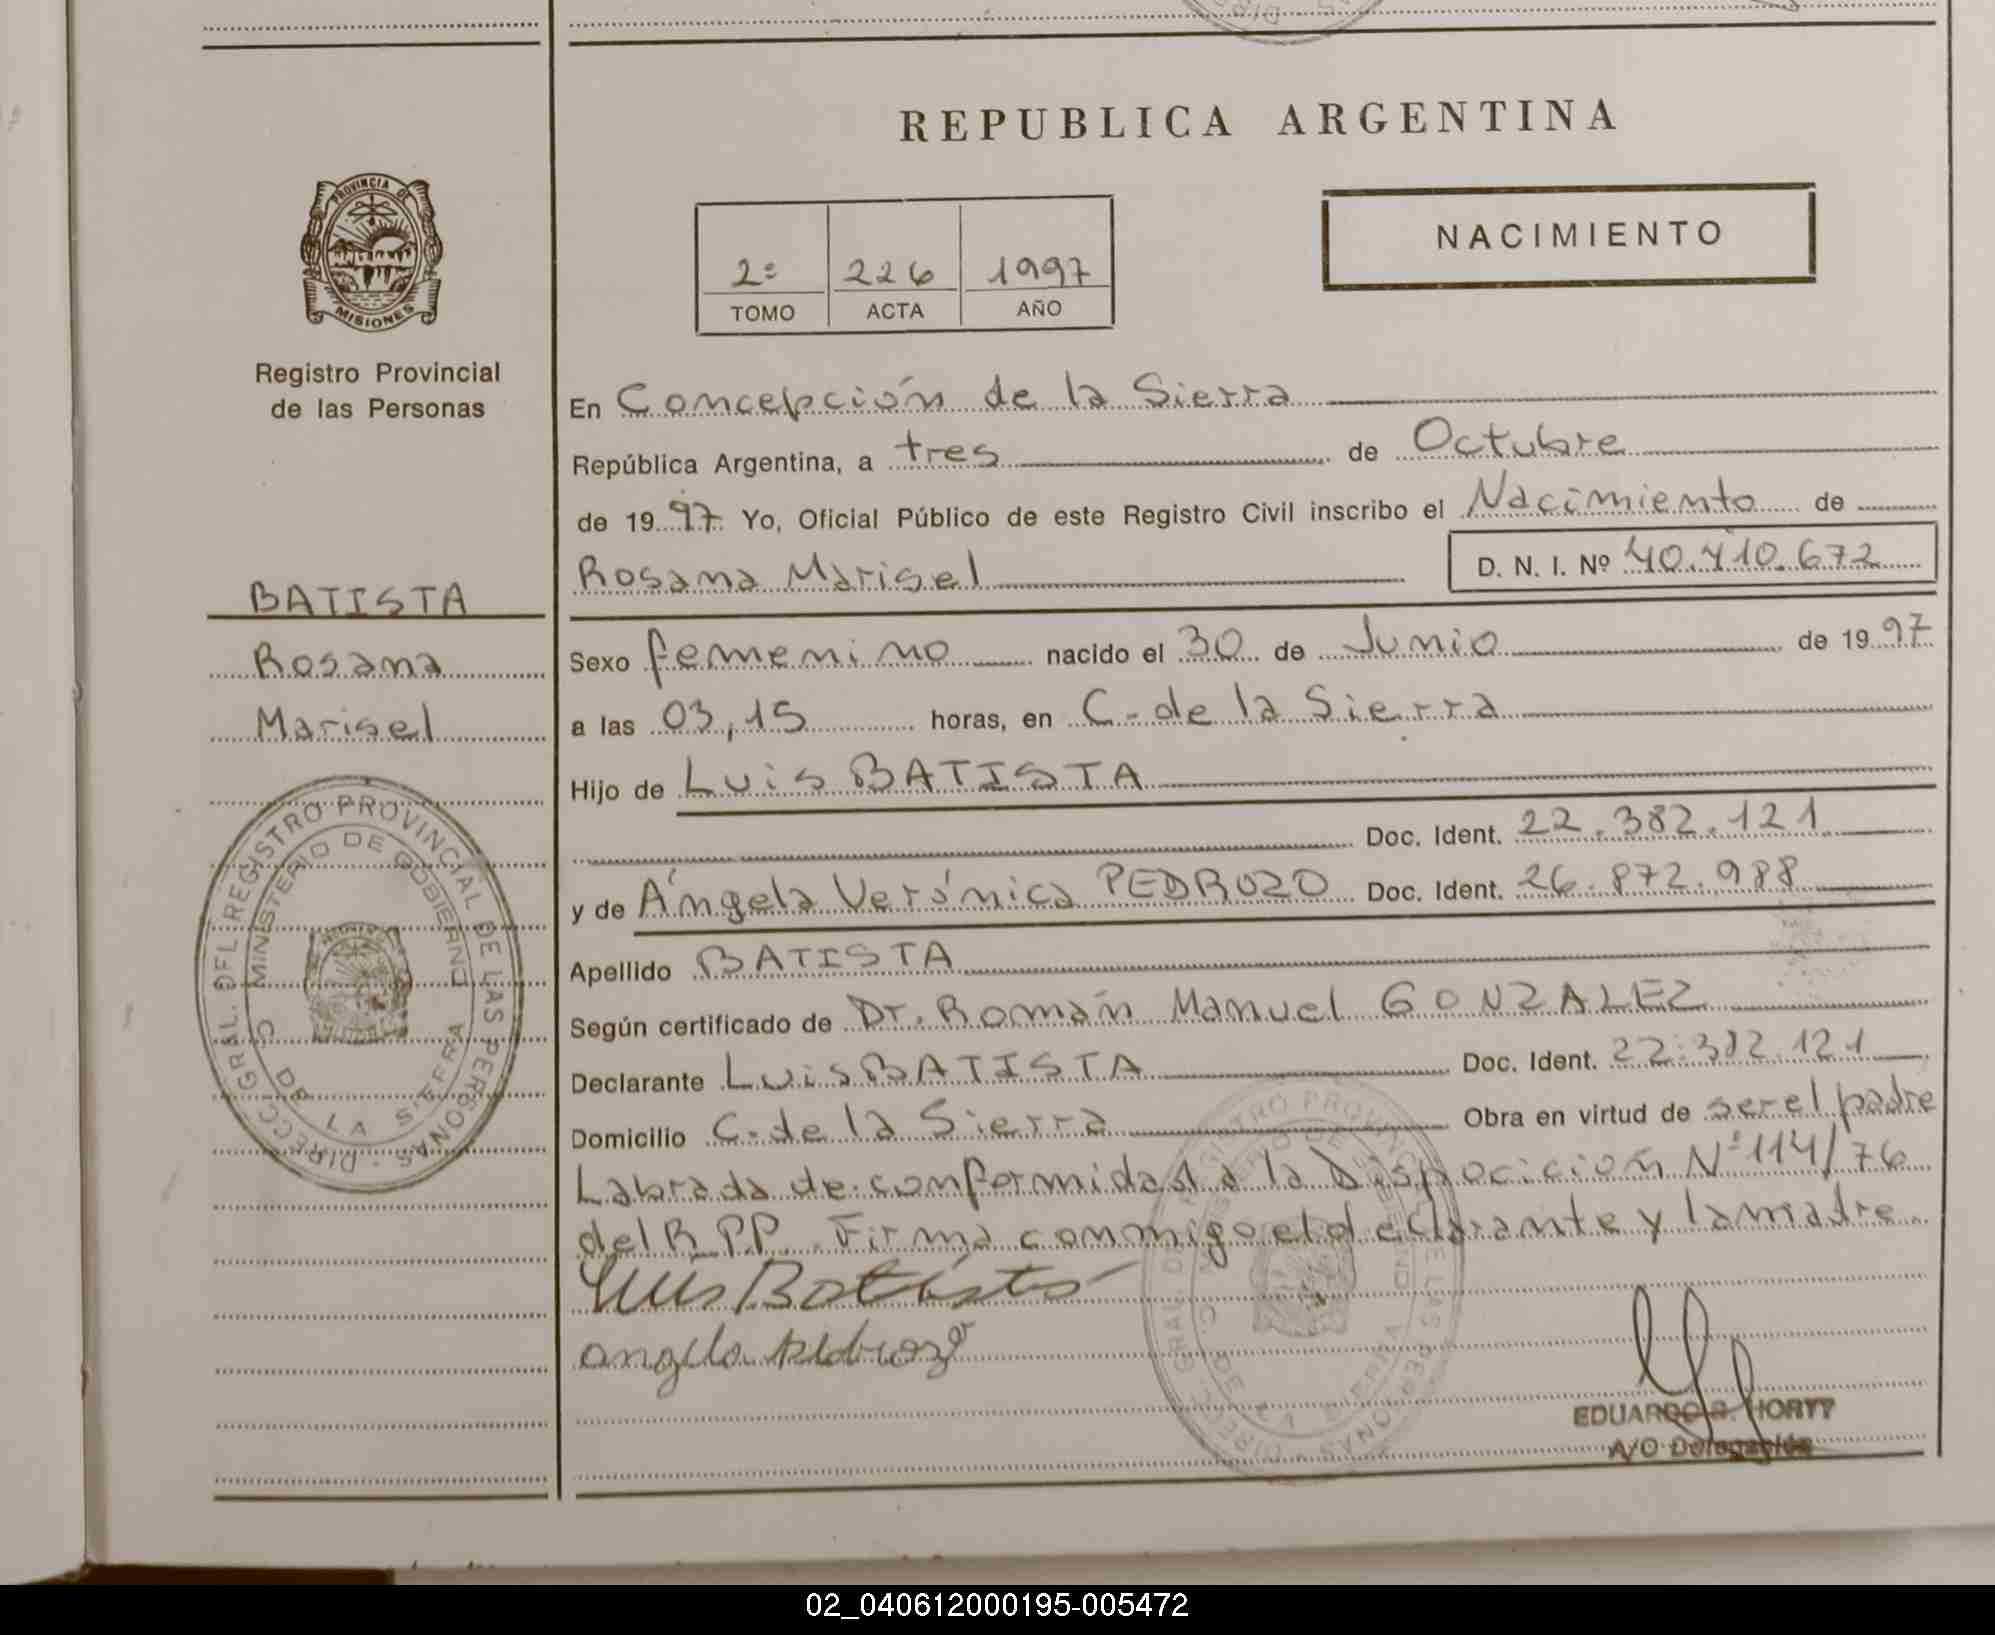 REPUBLICA ARGENTINA
PROVINCIA DE
MISIONES
Registro Provincial
de las Personas
NACIMIENTO
2º 226 1997
TOMO ACTA AÑO
En Concepción de la Sierra
República Argentina, a tres de Octubre
de 1997 Yo, Oficial Público de este Registro Civil inscribo el Nacimiento de
Rosana Marisel D. N. I. Nº 40.410.672
BATISTA
Rosana
Marisel
Sexo femenino nacido el 30 de Junio de 1997
a las 03,15 horas, en C. de la Sierra
Hijo de Luis BATISTA
Doc. Ident. 22.382.121
y de Ángela Verónica PEDROZO Doc. Ident. 26.872.988
Apellido BATISTA
Según certificado de Dr. Román Manuel GONZALEZ
Declarante Luis BATISTA Doc. Ident. 22.382.121
Domicilio C. de la Sierra Obra en virtud de ser el padre
Labrada de conformidad a la Disposición Nº 114/76
del R.P.P. Firma conmigo el declarante y la madre
Luis Batista
Angela Pedrozo
DIRECC. GRAL. DEL REGISTRO PROVINCIAL DE LAS PERSONAS
MINISTERIO DE GOBIERNO
C. DE LA SIERRA
EDUARDO
A/O Delegación
02_040612000195-005472